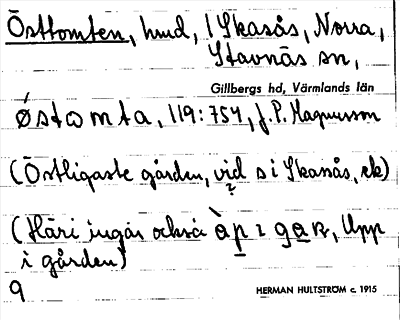 Östtomten, hmd, i Skasås, Norra,
Stavnäs sn,
Gillbergs hd, Värmlands län
østomta, 119:754, J.P. Magnusson
(Östligaste gården, vid s i Skasås, ek)
?
(Häri ingår också gaʀ, Upp
i gården)
9
HERMAN HULTSTRÖM c. 1915